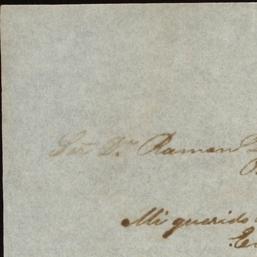 Sor Dn Ramon
Mi querido